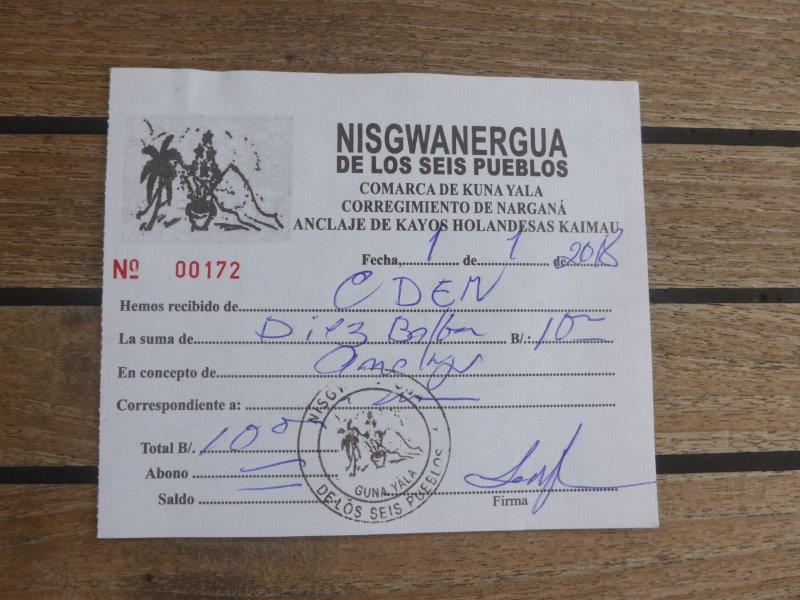 NISGWANERGUA
DE LOS SEIS PUEBLOS
COMARCA DE KUNA YALA
CORREGIMIENTO DE NARGANÁ
ANCLAJE DE KAYOS HOLANDESAS KAIMAU
Fecha, 1 de 1 de 2018
Nº 00172
Hemos recibido de EDEN
La suma de Diez Balboa B/.: 10
En concepto de
Correspondiente a:
Total B/. 10
Abono
Saldo
Firma
NISGW
GUNA YALA
DE LOS SEIS PUEBLOS